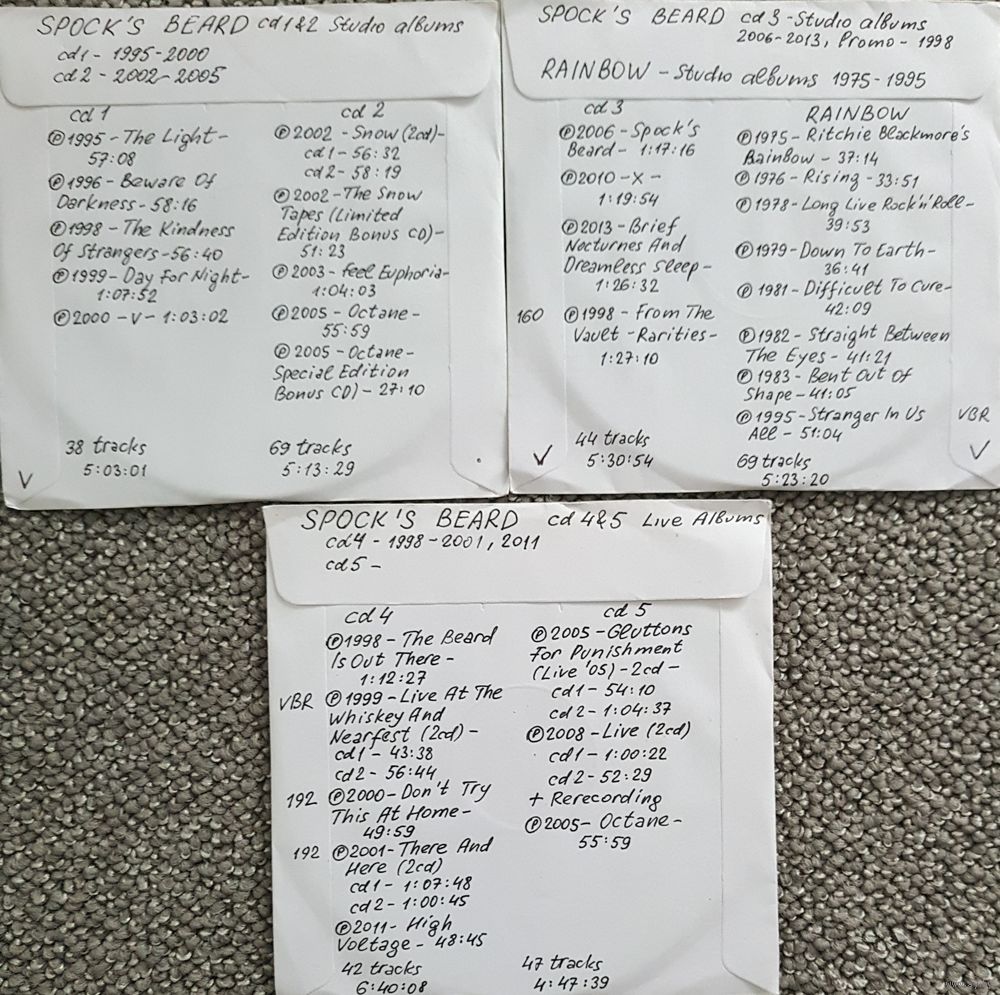 SPOCK'S BEARD cd1&2 Studio albums
cd1 - 1995-2000
cd2 - 2002-2005
cd 1
Ⓟ1995 - The Light -
57:08
Ⓟ1996 - Beware Of
Darkness - 58:16
Ⓟ1998 - The Kindness
Of Strangers - 56:40
Ⓟ1999 - Day For Night -
1:07:52
Ⓟ2000 - V - 1:03:02
38 tracks
5:03:01
V
cd 2
Ⓟ2002 - Snow (2cd) -
cd1 - 56:32
cd2 - 58:19
Ⓟ2002 - The Snow
Tapes (Limited
Edition Bonus CD) -
51:23
Ⓟ2003 - Feel Euphoria -
1:04:03
Ⓟ2005 - Octane -
55:59
Ⓟ2005 - Octane -
Special Edition
Bonus CD) - 27:10
69 tracks
5:13:29
SPOCK'S BEARD cd3 - Studio albums
2006-2013, Promo - 1998
RAINBOW - Studio albums 1975-1995
cd 3
Ⓟ2006 - Spock's
Beard - 1:17:16
Ⓟ2010 - X -
1:19:54
Ⓟ2013 - Brief
Nocturnes And
Dreamless Sleep -
1:26:32
160 Ⓟ1998 - From The
Vault - Rarities -
1:27:10
44 tracks
5:30:54
V
RAINBOW
Ⓟ1975 - Ritchie Blackmore's
Rainbow - 37:14
Ⓟ1976 - Rising - 33:51
Ⓟ1978 - Long Live Rock'n'Roll -
39:53
Ⓟ1979 - Down To Earth -
36:41
Ⓟ1981 - Difficult To Cure -
42:09
Ⓟ1982 - Straight Between
The Eyes - 41:21
Ⓟ1983 - Bent Out Of
Shape - 41:05
Ⓟ1995 - Stranger In Us VBR
All - 51:04
69 tracks
5:23:20
V
SPOCK'S BEARD cd 4&5 Live Albums
cd4 - 1998-2001, 2011
cd5 -
cd 4
Ⓟ1998 - The Beard
Is Out There -
1:12:27
VBR Ⓟ1999 - Live At The
Whiskey And
Nearfest (2cd) -
cd1 - 43:38
cd2 - 56:44
192 Ⓟ2000 - Don't Try
This At Home -
49:59
192 Ⓟ2001 - There And
Here (2cd)
cd1 - 1:07:48
cd2 - 1:00:45
Ⓟ2011 - High
Voltage - 48:45
42 tracks
6:40:08
cd 5
Ⓟ2005 - Gluttons
For Punishment
(Live '05) - 2cd -
cd1 - 54:10
cd2 - 1:04:37
Ⓟ2008 - Live (2cd)
cd1 - 1:00:22
cd2 - 52:29
+ Rerecording
Ⓟ2005 - Octane -
55:59
47 tracks
4:47:39